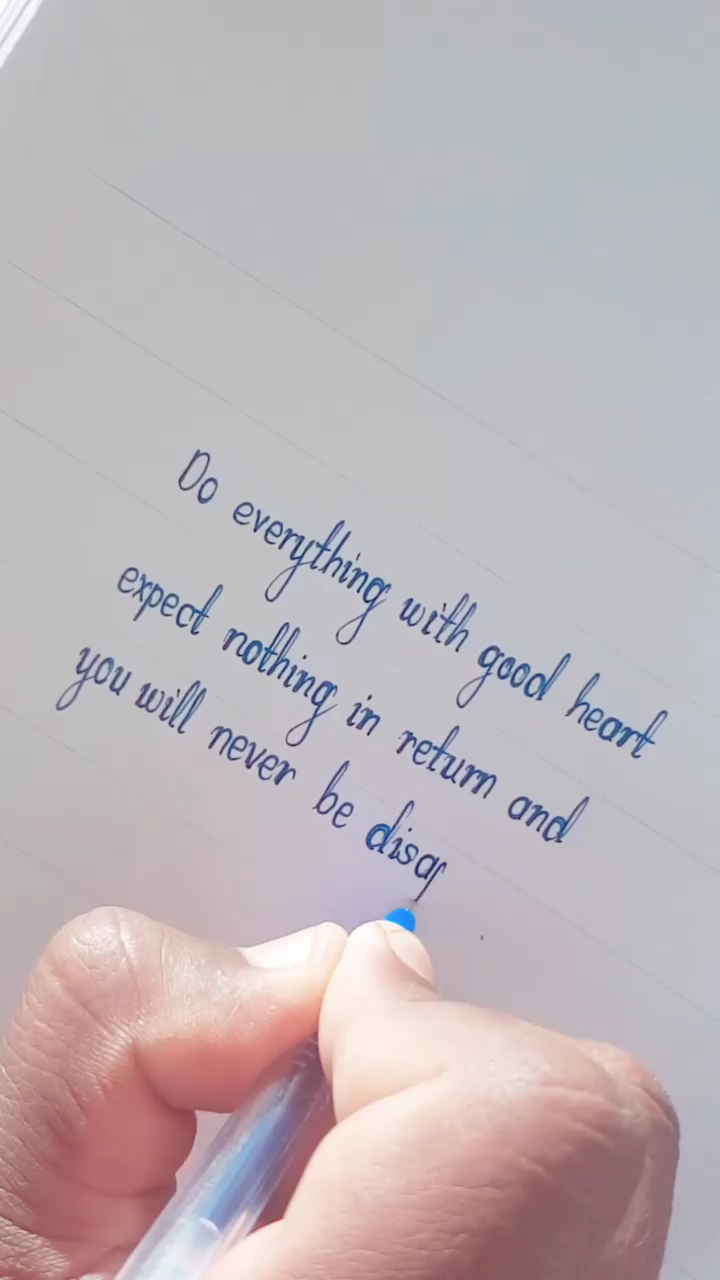 Do everything with good heart
expect nothing in return and
you will never be disap